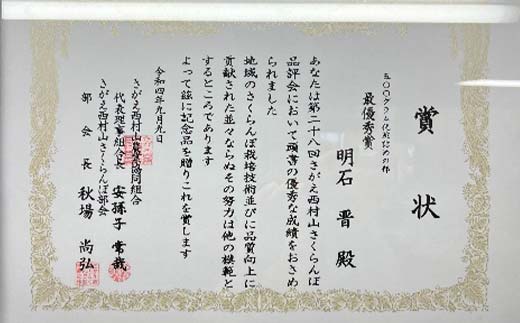 賞状
五〇〇グラム化粧詰めの部
最優秀賞
明石 晋 殿
あなたは第二十八回さがえ西村山さくらんぼ
品評会において頭書の優秀な成績をおさめ
られました
地域のさくらんぼ栽培技術並びに品質向上に
貢献された並々ならぬその努力は他の模範と
するところであります
よって茲に記念品を贈りこれを賞します
令和四年九月九日
さがえ西村山農業協同組合
代表理事組合長 安孫子 常哉
さがえ西村山さくらんぼ部会
部会長 秋場 尚弘